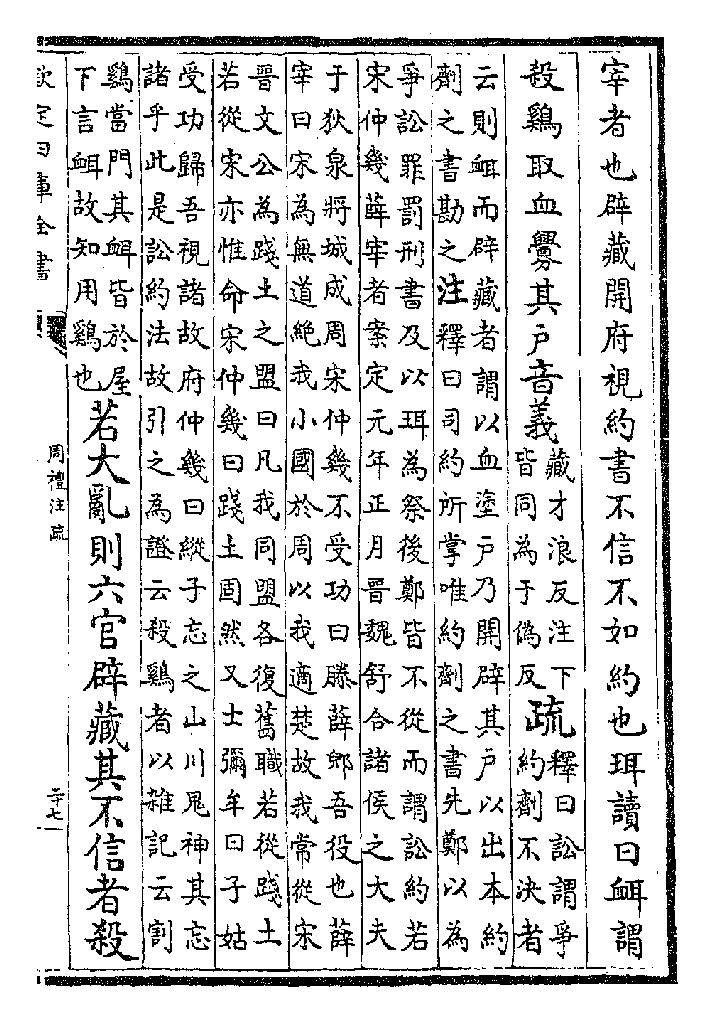 宰者也辟藏開府視約書不信不如約也珥讀曰衈謂
殺鷄取血釁其戶音義
藏才浪反注下
皆同為于偽反
疏
釋曰訟謂爭
約劑不決者
云則衈而辟藏者謂以血塗戶乃開辟其戶以出本約
劑之書勘之注釋曰司約所掌唯約劑之書先鄭以為
爭訟罪罰刑書及以珥為祭後鄭皆不從而謂訟約若
宋仲幾薛宰者案定元年正月晉魏舒合諸侯之大夫
于狄泉將城成周宋仲幾不受功曰滕薛郳吾役也薛
宰曰宋為無道絶我小國於周以我適楚故我常從宋
晉文公為踐土之盟曰凡我同盟各復舊職若從踐土
若從宋亦惟命宋仲幾曰踐土固然又士彌牟曰子姑
受功歸吾視諸故府仲幾曰縱子忘之山川鬼神其忘
諸乎此是訟約法故引之為證云殺鷄者以雜記云割
鷄當門其衈皆於屋
下言衈故知用鷄也
若大亂則六官辟藏其不信者殺
欽定四庫全書
周禮注疏
二十七